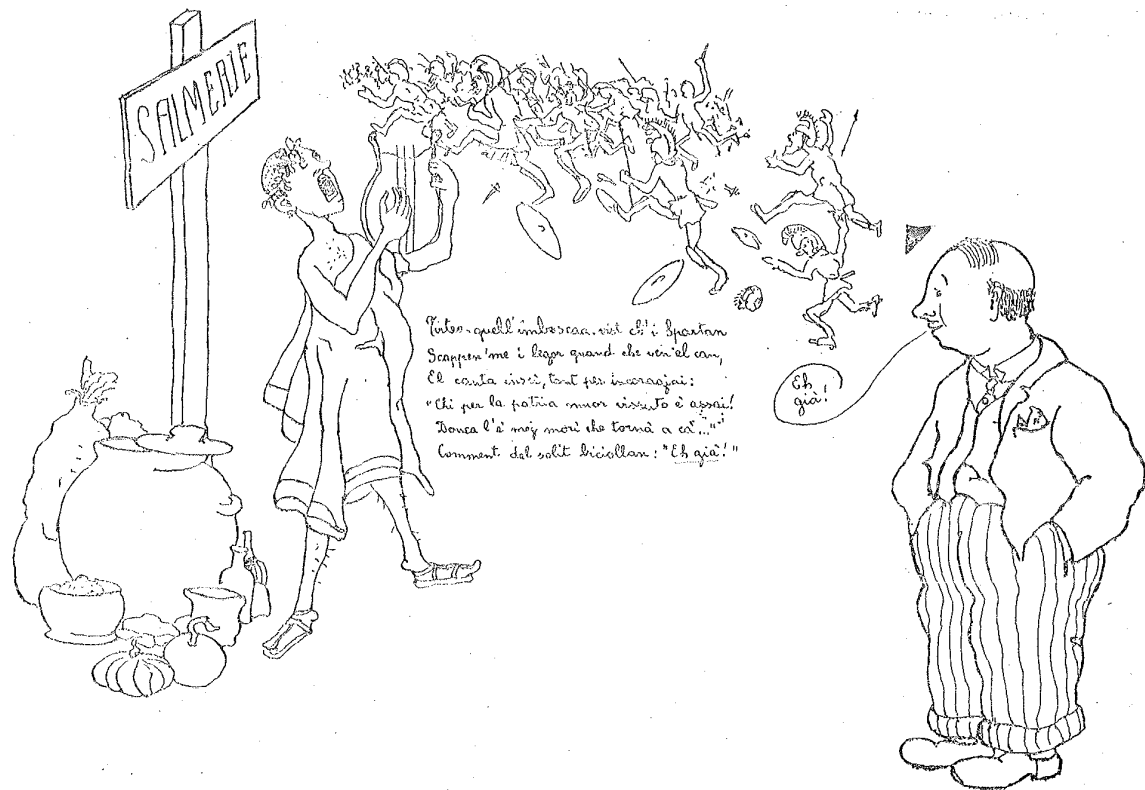 SALMERIE
Tirteo-quell'imboscaa-vist ch'i Spartan
Scappen'me i legor quand che ven'el can,
El canta insci, tant per incoraggiai:
"Chi per la patria muor vissuto è assai!
Donca l'è mej morì che tornà a cà..."
Comment del solit biciollan: "Eh già!"
Eh
già!